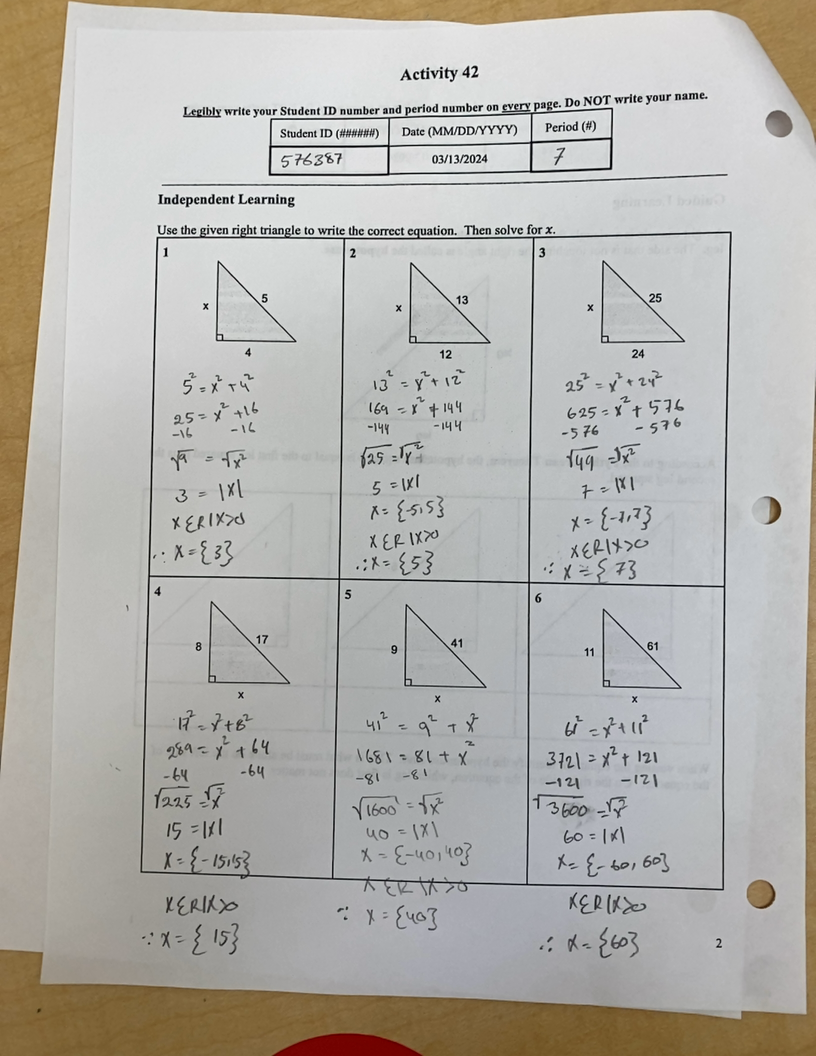 Activity 42
Legibly write your Student ID number and period number on every page. Do NOT write your name.
Student ID (######) Date (MM/DD/YYYY) Period (#)
576387 03/13/2024 7
Independent Learning
Use the given right triangle to write the correct equation. Then solve for x.
1
x 5
4
5² = x² + 4²
25 = x² + 16
-16 -16
√9 = √x²
3 = |x|
x ∈ R | x > 0
∴ x = {3}
2
x 13
12
13² = x² + 12²
169 = x² + 144
-144 -144
√25 = √x²
5 = |x|
x = {-5, 5}
x ∈ R | x > 0
∴ x = {5}
3
x 25
24
25² = x² + 24²
625 = x² + 576
-576 -576
√49 = √x²
7 = |x|
x = {-7, 7}
x ∈ R | x > 0
∴ x = {7}
4
8 17
x
17² = x² + 8²
289 = x² + 64
-64 -64
√225 = √x²
15 = |x|
x = {-15, 15}
x ∈ R | x > 0
∴ x = {15}
5
9 41
x
41² = 9² + x²
1681 = 81 + x²
-81 -81
√1600 = √x²
40 = |x|
x = {-40, 40}
x ∈ R | x > 0
∵ x = {40}
6
11 61
x
61² = x² + 11²
3721 = x² + 121
-121 -121
√3600 = √x²
60 = |x|
x = {-60, 60}
x ∈ R | x > 0
∴ x = {60}
2